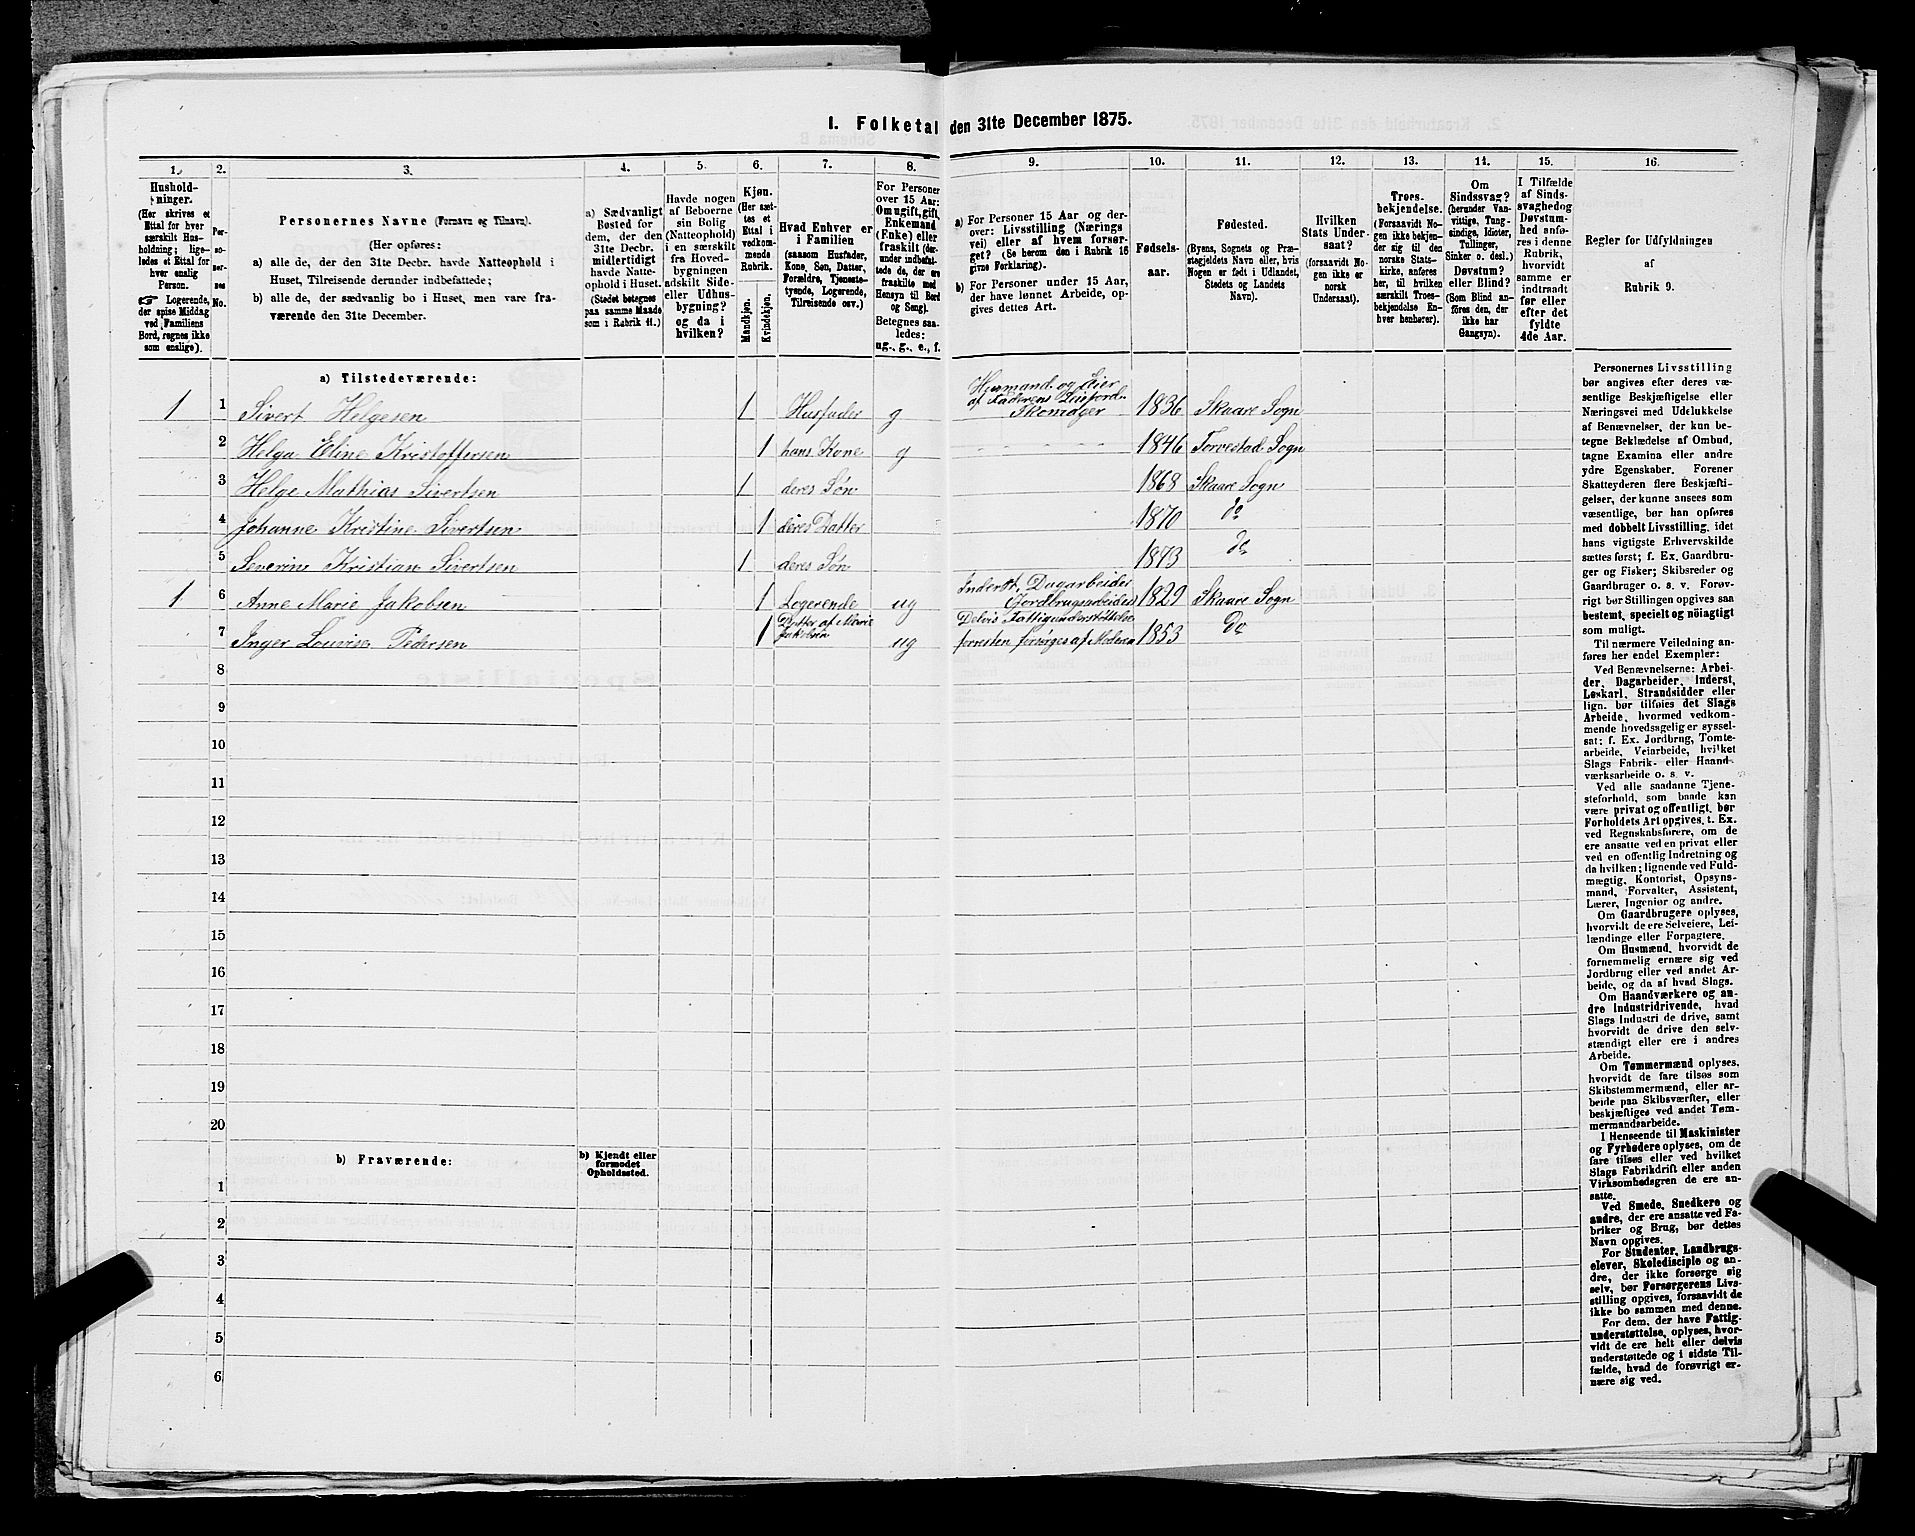 I. Folketal den 31te December 1875.
1. 2. 3. 4. 5. 6. 7. 8. 9. 10. 11. 12. 13. 14. 15. 16.
Hushold-
ninger.
(Her skrives et
Ettal for hver
særskilt Hus-
holdning; lige-
ledes et Ettal for
hver enslig
Person.
☛ Logerende,
der spise Middag
ved Familiens
Bord, regnes ikke
som enslige).
Per-
so-
ner-
nes
No.
Personernes Navne (Fornavn og Tilnavn).
(Her opføres:
a) alle de, der den 31te Decbr. havde Natteophold i
Huset, Tilreisende derunder indbefattede;
b) alle de, der sædvanlig bo i Huset, men vare fra-
værende den 31te December.
a) Sædvanligt
Bosted for
dem, der den
31te Decbr.
midlertidigt
havde Natte-
ophold i Huset.
(Stedet betegnes
paa samme Maade
som i Rubrik 11.)
Havde nogen
af Beboerne
sin Bolig
(Natteophold)
i en særskilt
fra Hoved-
bygningen
adskilt Side-
eller Udhus-
bygning?
og da i
hvilken?
Kjøn.
(Her sæt-
tes et
Ettal i
vedkom-
mende
Rubrik.
Mandkjøn.
Kvindekjøn.
Hvad Enhver er
i Familien
(saasom Husfader,
Kone, Søn, Datter,
Forældre, Tjeneste-
tyende, Logerende,
Tilreisende osv.)
For Personer
over 15 Aar:
Om ugift, gift,
Enkemand
(Enke) eller
fraskilt
Hensyn til Bord
og Seng).
Betegnes saa-
ledes:
ug., g., e., f.
a) For Personer 15 Aar og der-
over: Livsstilling (Nærings
vei) eller af hvem forsør-
get? (Se herom den i Rubrik 16
givne Forklaring).
b) For Personer under 15 Aar,
der have lønnet Arbeide, op-
gives dettes Art.
Fødsels-
aar.
Fødested.
(Byens, Sognets og Præ-
stegjeldets Navn eller, hvis
Nogen er født i Udlandet,
Stedets og Landets
Navn).
Hvilken
Stats Under-
saat?
(forsaavidt No-
gen ikke er
norsk
Undersaat).
Troes-
bekjendelse.
(Forsaavidt No-
gen ikke bekjen-
der sig til den
norske Stats-
kirke, anføres
her, til hvilken
særskilt Troes-
bekjendelse En-
hver henhører).
Om
Sindssvag?
(herunder Van-
vittige, Tung-
sindige, Idioter,
Tullinger,
Sinker o. desl.)
Døvstum?
eller Blind?
(Som Blind an-
føres den, der
ikke har
Gangsyn).
I Tilfælde
af Sinds-
svaghed og
Døvstum-
hed anfø-
res i denne
Rubrik,
hvorvidt
samme er
indtraadt
før eller
efter det
fyldte
4de Aar.
Regler for Udfyldningen
af
Rubrik 9.
a) Tilstedeværende:
1 1 Sivert Helgesen 1 Husfader g Husmand og Eier
af Faderens
Skomager 1836 Skaare Sogn
2 Helga Eline Kristoffersen 1 hans Kone g 1846 Torvestad Sogn
3 Helge Mathias Sivertsen 1 deres Søn 1868 Skaare Sogn
4 Johanne Kristine Sivertsen 1 deres Datter 1870 do
5 Severine Kristian Sivertsen 1 deres Søn 1873 do
1 6 Anne Marie Jakobsen 1 Logerende ug Inderst, Dagarbeider
Jordbrugsarbeide 1829 Skaare Sogn
7 Inger Lovise Pedersen 1 Datter af Marie
Jakobsen ug Delvis Fattigunderstøttelse
forresten forsørges af Moderen 1853 do
8
9
10
11
12
13
14
15
16
17
18
19
20
b) Fraværende:
b) Kjendt eller
formodet
Opholdssted.
1
2
3
4
5
6
Personernes Livsstilling
bør angives efter deres væ-
sentlige Beskjæftigelse eller
Næringsvei med Udelukkelse
af Benævnelser, der kun be-
tegne Beklædelse af Ombud,
tagne Examina eller andre
ydre Egenskaber. Forener
Skatteyderen flere Beskjæfti-
gelser, der kunne ansees som
væsentlige, bør han opføres
med dobbelt Livsstilling, idet
hans vigtigste Erhvervskilde
sættes først; f. Ex. Gaardbru-
ger og Fisker; Skibsreder og
Gaardbruger o. s. v. Forøv-
rigt bør Stillingen opgives saa
bestemt, specielt og nøiagtigt
som muligt.
Til nærmere Veiledning an-
føres her endel Exempler:
Ved Benævnelserne: Arbei-
der, Dagarbeider, Inderst,
Løskarl, Strandsidder eller
lign. bør tilføies det Slags
Arbeide, hvormed vedkom-
mende hovedsagelig er syssel-
sat; f. Ex. Jordbrug, Tomte-
arbeide, Veiarbeide, hvilket
Slags Fabrik- eller Haand-
værksarbeide o. s. v.
Ved alle saadanne Tjene-
steforhold, som baade kan
være privat og offentligt, bør
Forholdets Art opgives, t. Ex.
ved Regnskabsførere, om de
ere ansatte ved en privat eller
ved en offentlig Indretning og
da hvilken; lignende ved Fuld-
mægtig, Kontorist, Opsyns-
mand, Forvalter, Assistent,
Lærer, Ingeniør og andre.
Om Gaardbrugere oplyses,
hvorvidt de ere Selveiere, Lei-
lændinge eller Forpagtere.
Om Husmænd, hvorvidt de
fornemmelig ernære sig ved
Jordbrug eller ved andet Ar-
beide, og da af hvad Slags.
Om Haandværkere og an-
dre Industridrivende, hvad
Slags Industri de drive, samt
hvorvidt de drive den selv-
stændigt eller ere i andres
Arbeide.
Om Tømmermænd oplyses,
hvorvidt de fare tilsøs som
Skibstømmermænd, eller ar-
beide paa Skibsværfter, eller
beskjæftiges ved andet Tøm-
mermandsarbeide.
I Henseende til Maskinister
og Fyrbødere oplyses, om de
fare tilsøs eller ved hvilket
Slags Fabrikdrift eller anden
Virksomhedsgren de ere an-
satte.
Ved Smede, Snedkere og
andre, der ere ansatte ved Fa-
briker og Brug, bør dettes
Navn opgives.
For Studenter, Landbrugs-
elever, Skoledisciple og an-
dre, der ikke forsørge sig
selv, bør Forsørgerens Livs-
stilling opgives, forsaavidt de
ikke bo sammen med denne.
For dem, der have Fattig-
understøttelse, oplyses, hvor-
vidt de ere helt eller delvis
understøttede og i sidste Til-
fælde, hvad de forøvrigt er-
nære sig ved.